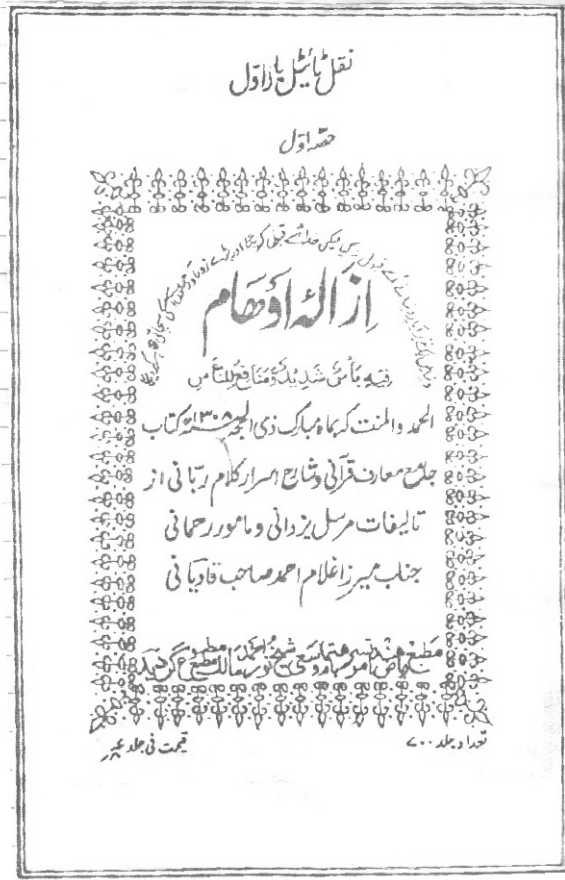 نقل ٹائیٹل بار اوّل
حصّہ اوّل
دنیا میں ایک نذیر آیا پر دنیا نے اُسے قبول نہیں کیا لیکن خدا اُسے قبول کریگا اور بڑے زور آور حملوں سے اُس کی سچائی ظاہر کر دیگا
اِزَالۂ اَوْهَام
فِيْهِ بَأْسٌ شَدِيْدٌ وَّمَنَافِعُ لِلنَّاسِ
الحمد والمنت کہ بماہ مبارک ذی الحجہ ۱۳۰۸ کتاب
جامع معارف قرآنی و شارح اسرار کلام ربّانی از
تالیفات مرسل یزدانی و مامور رحمانی
جناب میرزا غلام احمد صاحب قادیانی
مطبع گردید
تعداد جلد ۷۰۰
قیمت فی جلد